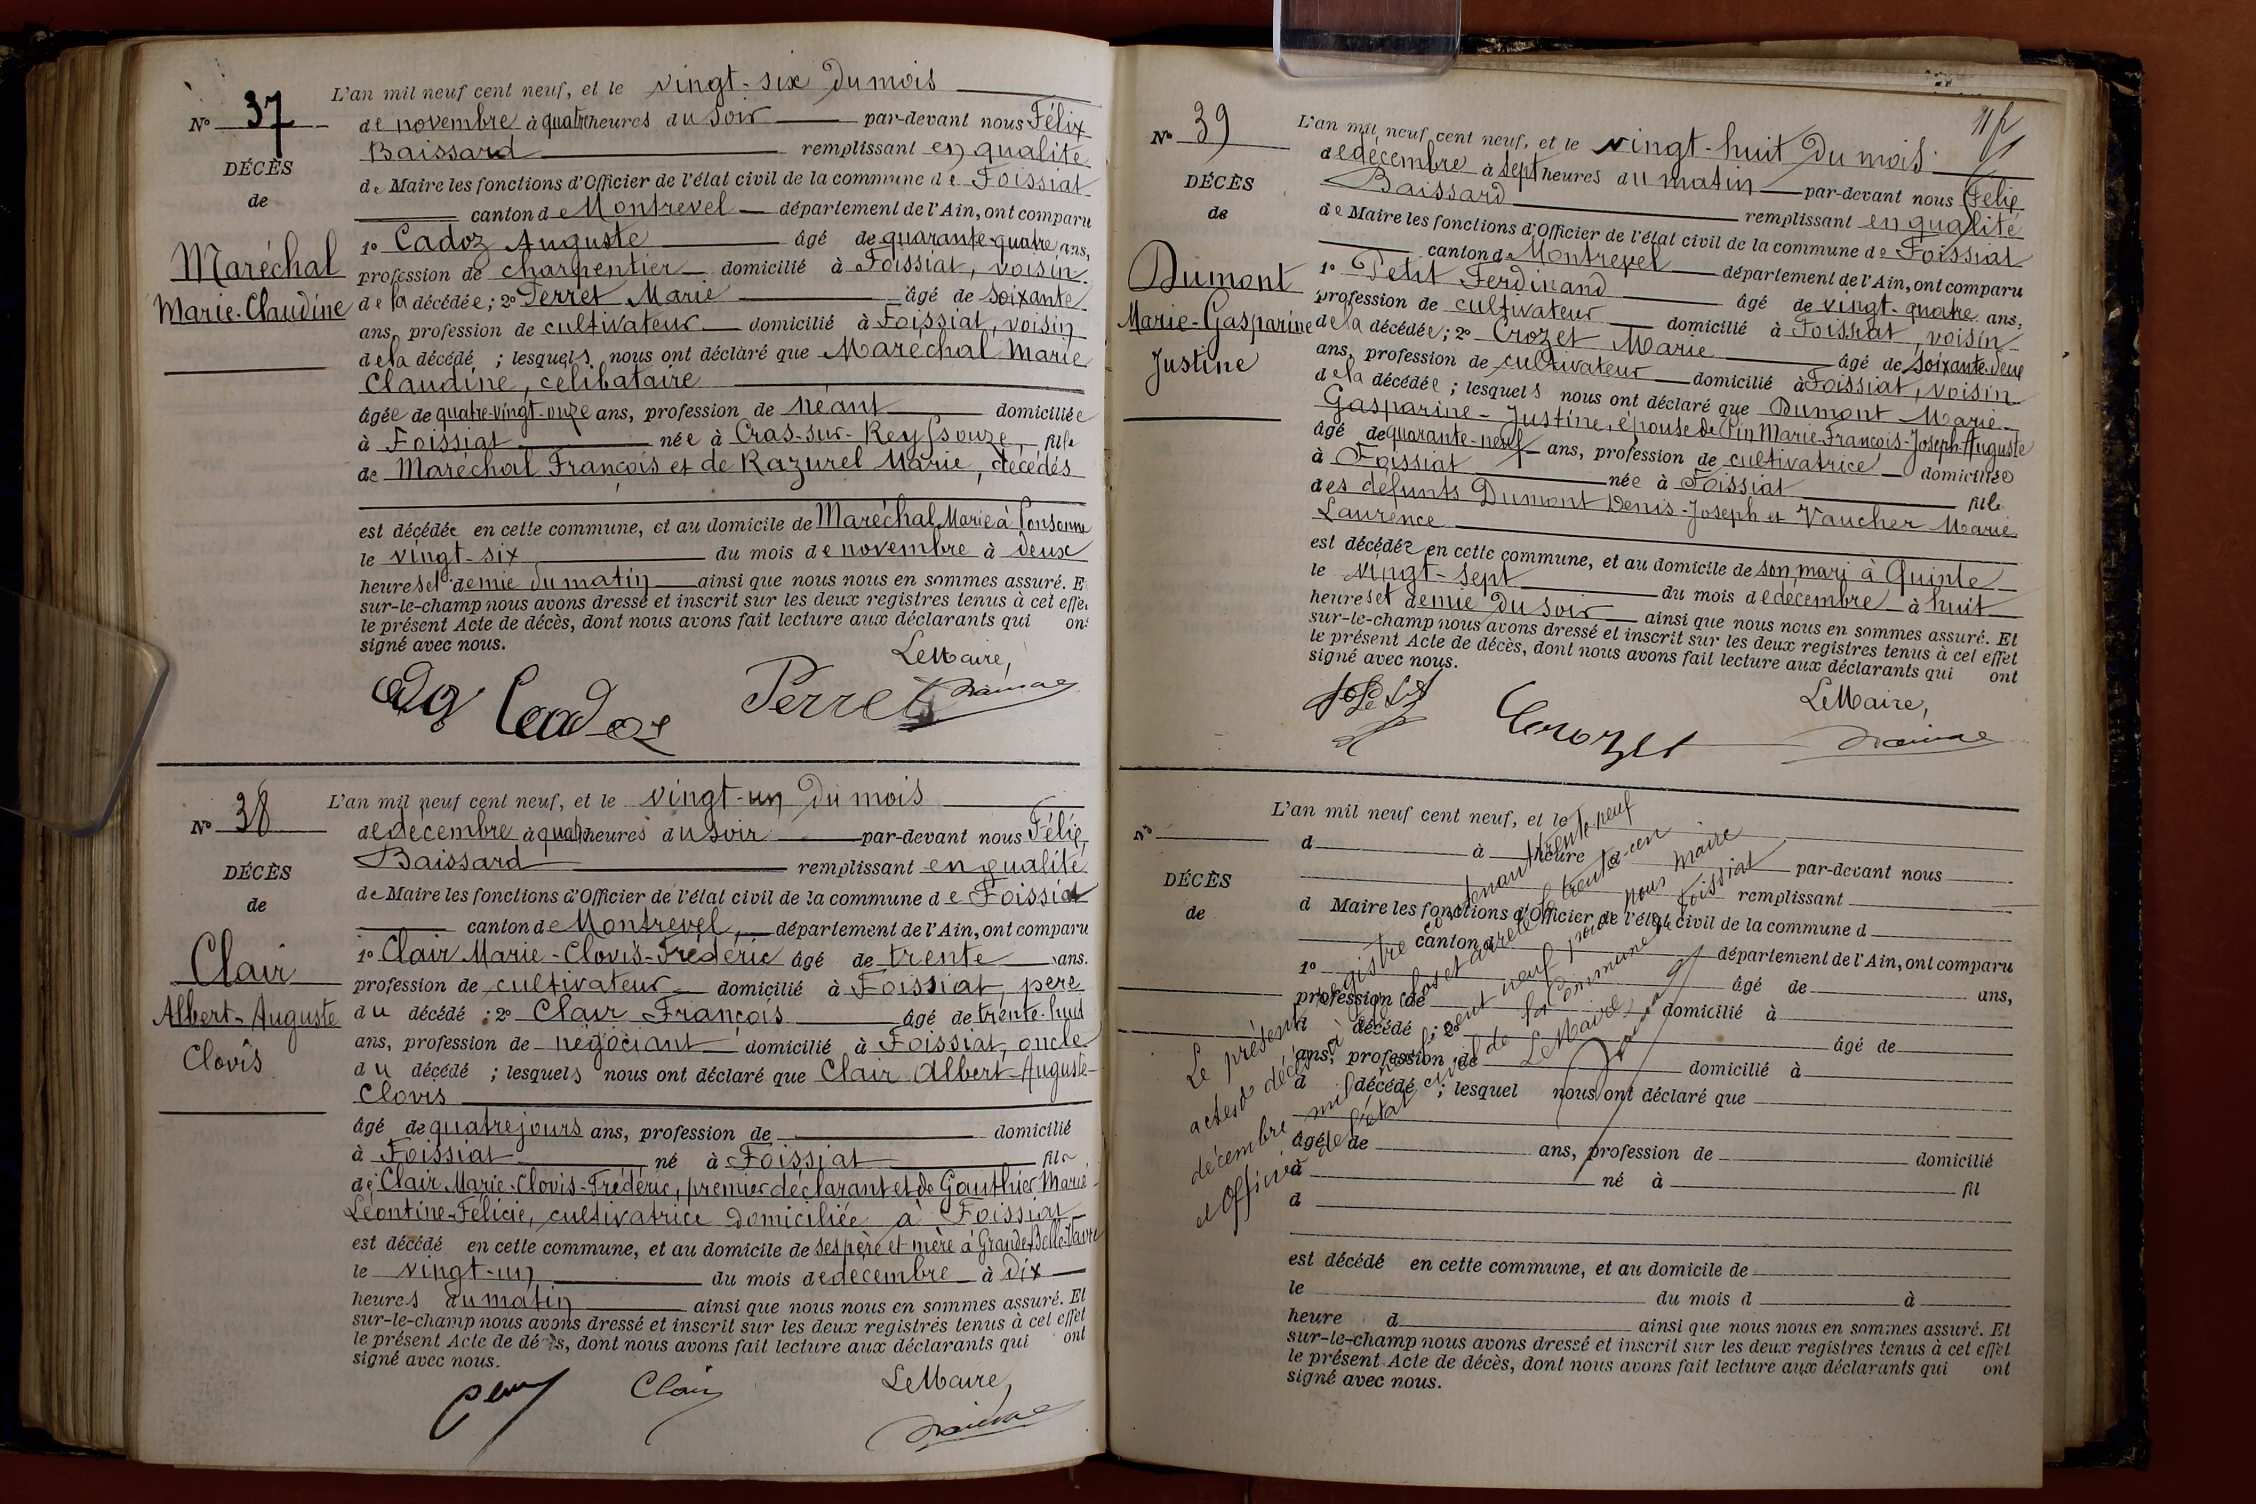 N° 37
DÉCÈS
de
Maréchal
Marie-Claudine
L'an mil neuf cent neuf, et le vingt-six du mois
de novembre à quatre heures du soir par-devant nous Félix
Baissard remplissant en qualité
de Maire les fonctions d'Officier de l'état civil de la commune de Foissiat
canton de Montrevel département de l'Ain, ont comparu
1° Cadoz Auguste âgé de quarante-quatre ans,
profession de charpentier domicilié à Foissiat, voisin
de la décédée ; 2° Perret Marie âgé de soixante
ans, profession de cultivateur domicilié à Foissiat, voisin
de la décédé ; lesquels nous ont déclaré que Maréchal Marie
Claudine, célibataire
âgée de quatre-vingt-onze ans, profession de néant domiciliée
à Foissiat née à Cras-sur-Reyssouze fille
de Maréchal François et de Razurel Marie, décédés
est décédée en cette commune, et au domicile de Maréchal Marie à Consonne
le vingt-six du mois de novembre à deux
heures et demie du matin ainsi que nous nous en sommes assuré. E
sur-le-champ nous avons dressé et inscrit sur les deux registres tenus à cet effe
le présent Acte de décès, dont nous avons fait lecture aux déclarants qui ont
signé avec nous.
Le Maire,
Cadoz Perret
N° 38
DÉCÈS
de
Clair
Albert-Auguste
Clovis
L'an mil neuf cent neuf, et le vingt-un du mois
de décembre à quatre heures du soir par-devant nous Félix
Baissard remplissant en qualité
de Maire les fonctions d'Officier de l'état civil de la commune de Foissiat
canton de Montrevel, département de l'Ain, ont comparu
1° Clair Marie-Clovis-Frédéric âgé de trente ans.
profession de cultivateur domicilié à Foissiat, père
du décédé ; 2° Clair François âgé de trente-huit
ans, profession de négociant domicilié à Foissiat, oncle
du décédé ; lesquels nous ont déclaré que Clair Albert-Auguste-
Clovis
âgé de quatre jours ans, profession de domicilié
à Foissiat né à Foissiat fils
de Clair Marie-Clovis-Frédéric, premier déclarant et de Gauthier Marie-
Léontine-Félicie, cultivatrice domiciliée à Foissiat
est décédé en cette commune, et au domicile de ses père et mère à Grande Belle-Vavre
le vingt-un du mois de décembre à dix
heures du matin ainsi que nous nous en sommes assuré. Et
sur-le-champ nous avons dressé et inscrit sur les deux registres tenus à cet effet
le présent Acte de décès, dont nous avons fait lecture aux déclarants qui ont
signé avec nous.
Le Maire,
Clair
N° 39
DÉCÈS
de
Dumont
Marie-Gasparine
Justine
L'an mil neuf cent neuf, et le vingt-huit du mois
de décembre à sept heures du matin par-devant nous Félix
Baissard remplissant en qualité
de Maire les fonctions d'Officier de l'état civil de la commune de Foissiat
canton de Montrevel département de l'Ain, ont comparu
1° Petit Ferdinand âgé de vingt-quatre ans,
profession de cultivateur domicilié à Foissiat, voisin
de la décédée ; 2° Crozet Marie âgé de soixante-deux
ans, profession de cultivateur domicilié à Foissiat, voisin
de la décédée ; lesquels nous ont déclaré que Dumont Marie-
Gasparine-Justine, épouse de Pin Marie-François-Joseph-Auguste
âgé de quarante-neuf ans, profession de cultivatrice domiciliée
à Foissiat née à Foissiat fille
des défunts Dumont Denis-Joseph et Vaucher Marie
Laurence
est décédée en cette commune, et au domicile de son mari à Quinte
le vingt-sept du mois de décembre à huit
heures et demie du soir ainsi que nous nous en sommes assuré. Et
sur-le-champ nous avons dressé et inscrit sur les deux registres tenus à cet effet
le présent Acte de décès, dont nous avons fait lecture aux déclarants qui ont
signé avec nous.
Le Maire,
Crozet
N°
DÉCÈS
de
L'an mil neuf cent neuf, et le
d à heure
par-devant nous
remplissant
d Maire les fonctions d'Officier de l'état civil de la commune d
canton d département de l'Ain, ont comparu
1° âgé de ans,
profession de domicilié à
d décédé ; 2° âgé de
ans, profession de domicilié à
d décédé ; lesquel nous ont déclaré que
âgé de ans, profession de domicilié
à né à fil
d
est décédé en cette commune, et au domicile de
le du mois d à
heure d ainsi que nous nous en sommes assuré. Et
sur-le-champ nous avons dressé et inscrit sur les deux registres tenus à cet effet
le présent Acte de décès, dont nous avons fait lecture aux déclarants qui ont
signé avec nous.
Le présent registre contenant trente-neuf
actes de décès a été clos et arrêté le trente-un
décembre mil neuf cent neuf par nous Maire
et Officier de l'état civil de la Commune de Foissiat
Le Maire,